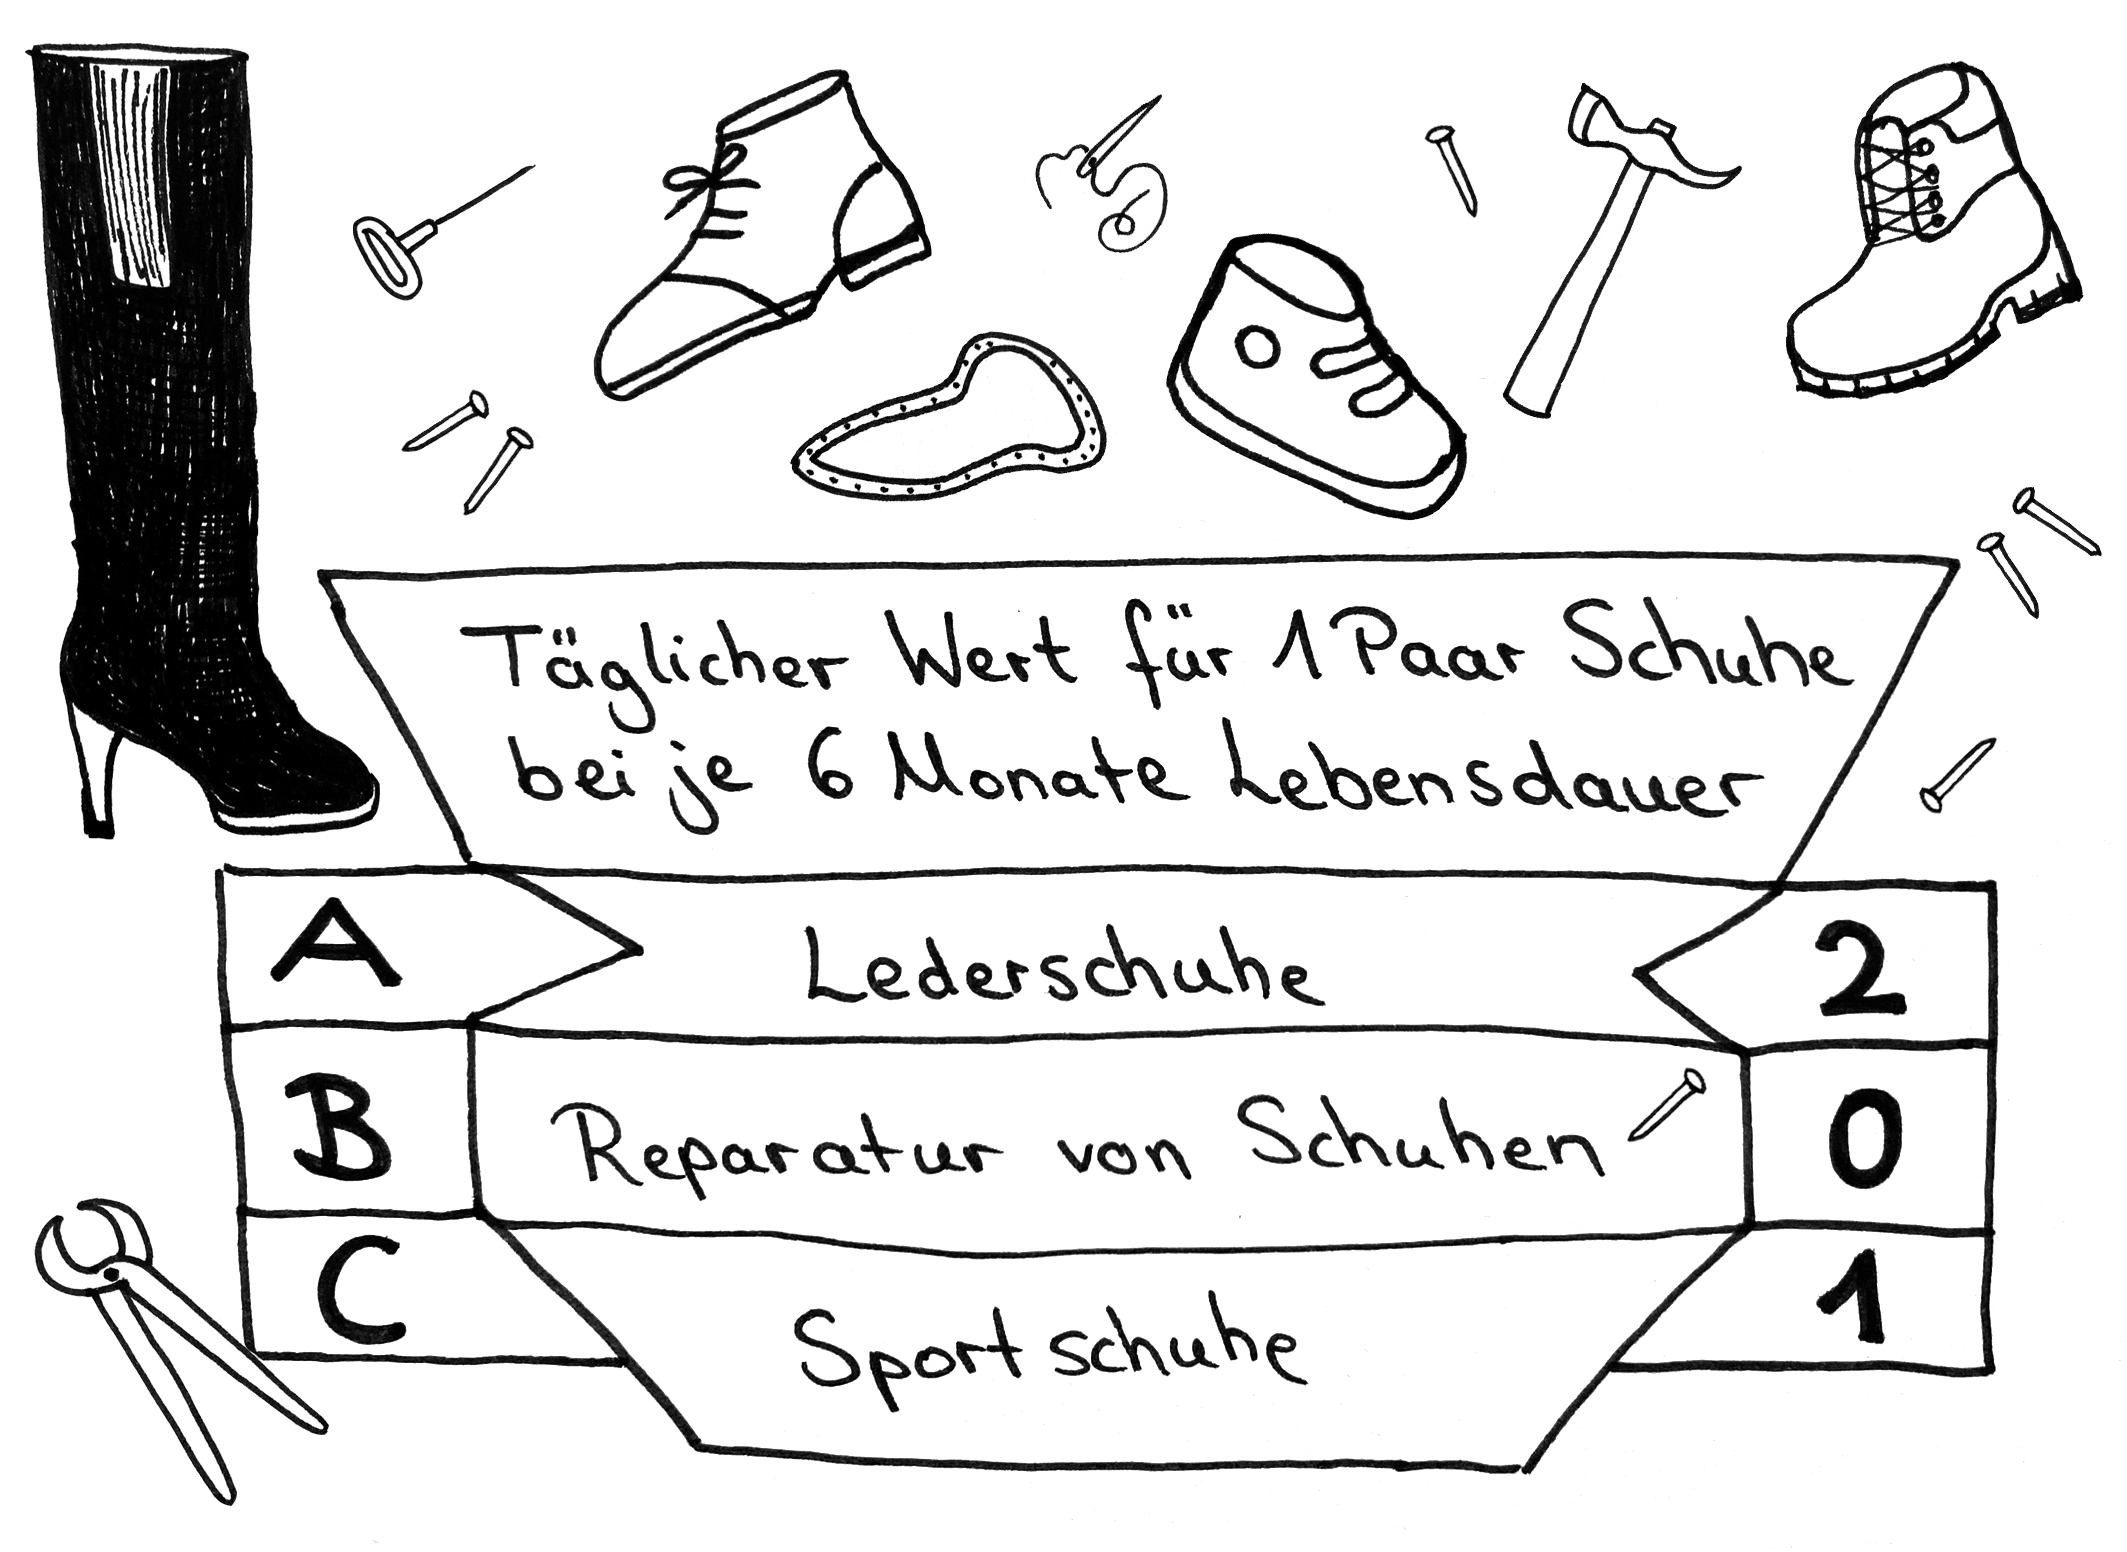 Täglicher Wert für 1 Paar Schuhe
bei je 6 Monate Lebensdauer
A Lederschuhe 2
B Reparatur von Schuhen 0
C Sportschuhe 1